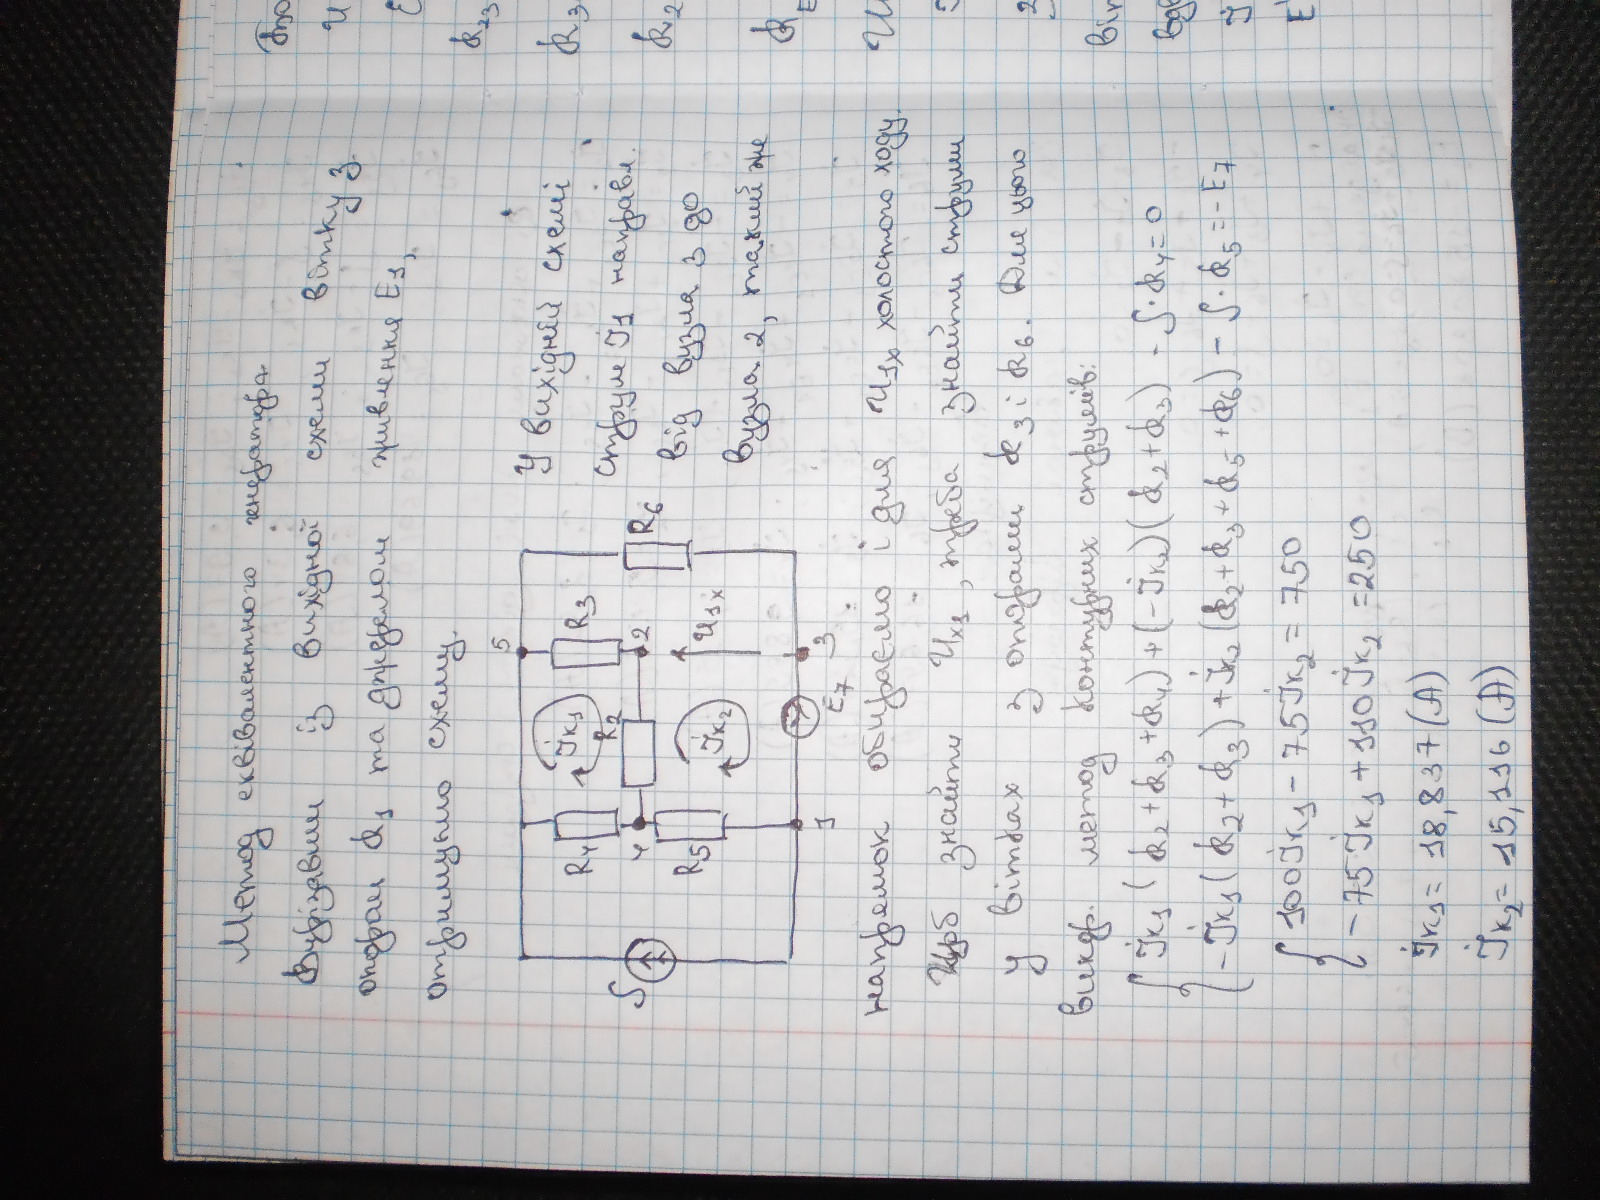 Метод еквівалентного генератора.
Вирізавши із вихідної схеми вітку з
опором R1 та джерелом живлення E1,
отримуємо схему.
5
R4
Iк1
R3
R2
4
2
S
R5
Iк2
U1x
R6
1
E7
3
У вихідній схемі
струм I1 направл.
від вузла 3 до
вузла 2, такий же
напрямок обираємо і для U1x холостого ходу.
Щоб знайти Uх1, треба знайти струми
у вітках з опорами R3 і R6. Для цього
викор. метод контурних струмів:
{ Iк1(R2+R3+R4)+(-Iк2)(R2+R3) - S·R4=0
-Iк1(R2+R3)+Iк2(R2+R3+R5+R6) - S·R5=-E7
{ 100Iк1-75Iк2=750
-75Iк1+110Iк2=250
Iк1=18,837(A)
Iк2=15,116(A)
R23
R3
R12
RE